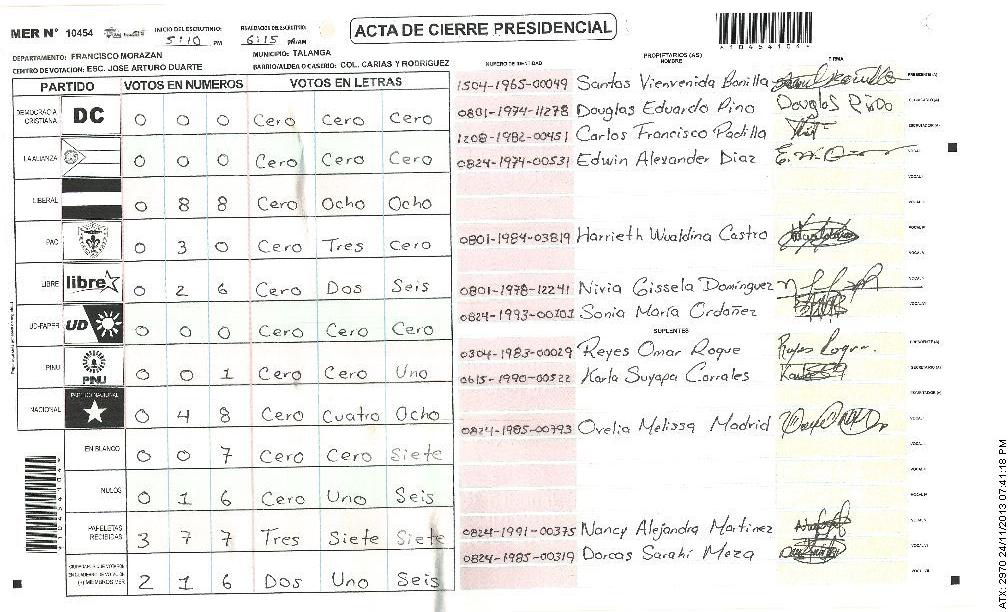 MER N° 10454 INICIO DEL ESCRUTINIO: 5:10 PM 6:15 PM ACTA DE CIERRE PRESIDENCIAL
DEPARTAMENTO: FRANCISCO MORAZAN MUNICIPIO: TALANGA
CENTRO DE VOTACION: ESC. JOSE ARTURO DUARTE BARRIO/ALDEA O CASERIO: COL. CARIAS Y RODRIGUEZ
PARTIDO VOTOS EN NUMEROS VOTOS EN LETRAS
DEMOCRACIA CRISTIANA DC 0 0 0 Cero Cero Cero
LA ALIANZA 0 0 0 Cero Cero Cero
LIBERAL 0 8 8 Cero Ocho Ocho
PAC 0 3 0 Cero Tres Cero
LIBRE libre 0 2 6 Cero Dos Seis
UD-FAPER UD 0 0 0 Cero Cero Cero
PINU PINU 0 0 1 Cero Cero Uno
NACIONAL PARTIDO NACIONAL 0 4 8 Cero Cuatro Ocho
EN BLANCO 0 0 7 Cero Cero Siete
NULOS 0 1 6 Cero Uno Seis
PAPELETAS RECIBIDAS 3 7 7 Tres Siete Siete
2 1 6 Dos Uno Seis
NUMERO DE IDENTIDAD PROPIETARIOS (AS) NOMBRE FIRMA
1504-1965-00049 Santos Vienvenida Bonilla
0801-1974-11278 Douglas Eduardo Pino Douglas Pino
1208-1982-00451 Carlos Francisco Padilla
0824-1974-00531 Edwin Alexander Diaz
0801-1984-03819 Harrieth Wualdina Castro
0801-1978-12241 Nivia Gissela Dominguez
0824-1993-00101 Sonia María Ordoñez
SUPLENTES
0304-1983-00029 Reyes Omar Roque
0615-1990-00522 Karla Suyapa Corrales
0824-1985-00793 Ovelia Melissa Madrid
0824-1991-00375 Nancy Alejandra Martinez
0824-1985-00319 Dorcas Sarahi Meza
ATX: 2970 24/11/2013 07:41:18 PM